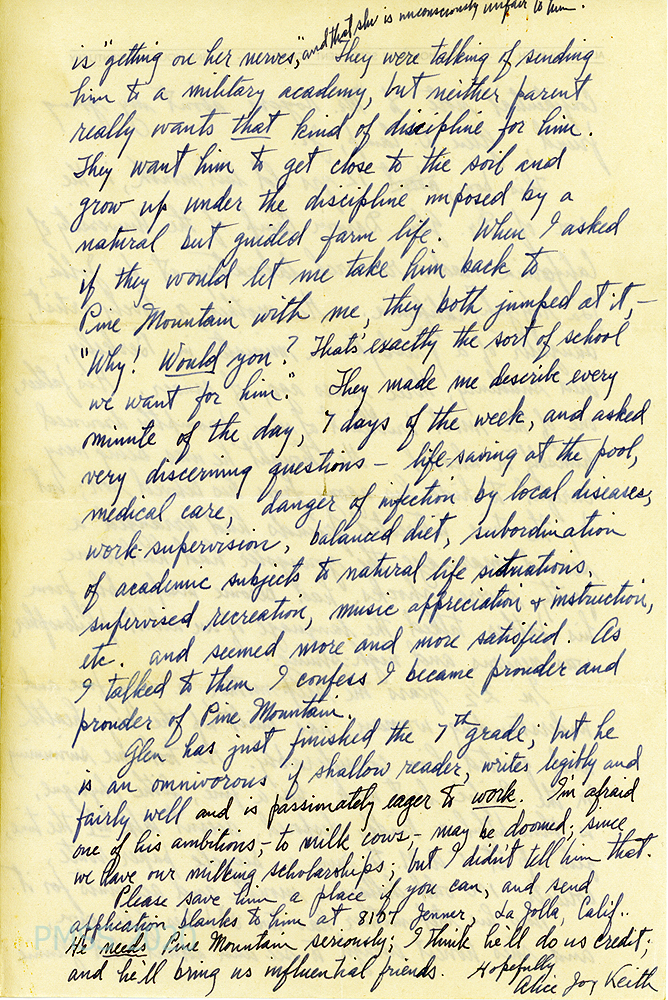 and that she is unconsciously unfair to him.
is "getting on her nerves," They were talking of sending
him to a military academy, but neither parent
really wants that kind of discipline for him.
They want him to get close to the soil and
grow up under the discipline imposed by a
natural but guided farm life. When I asked
if they would let me take him back to
Pine Mountain with me, they both jumped at it, —
"Why! Would you? That's exactly the sort of school
we want for him." They made me describe every
minute of the day, 7 days of the week, and asked
very discerning questions — life-saving at the pool,
medical care, danger of infection by local diseases,
work-supervision, balanced diet, subordination
of academic subjects to natural life situations,
supervised recreation, music appreciation & instruction,
etc. and seemed more and more satisfied. As
I talked to them I confess I became prouder and
prouder of Pine Mountain.
Glen has just finished the 7th grade; but he
is an omnivorous if shallow reader, writes legibly and
fairly well and is passionately eager to work. I'm afraid
one of his ambitions, – to milk cows, – may be doomed, since
we have our milking scholarships; but I didn't tell him that.
Please save him a place if you can, and send
application blanks to him at 8107 Jenner, La Jolla, Calif..
He needs Pine Mountain seriously; I think he'll do us credit;
and he'll bring us influential friends. Hopefully
Alice Joy Keith